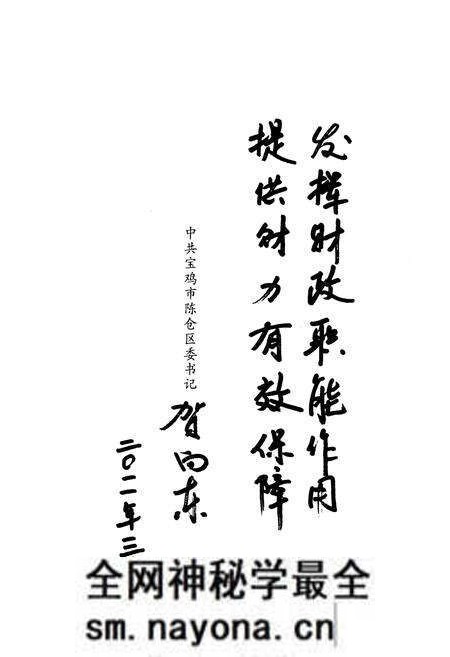 发挥财政职能作用
提供财力有效保障
中共宝鸡市陈仓区委书记
贺向东
二〇一一年三
全网神秘学最全
sm.nayona.cn